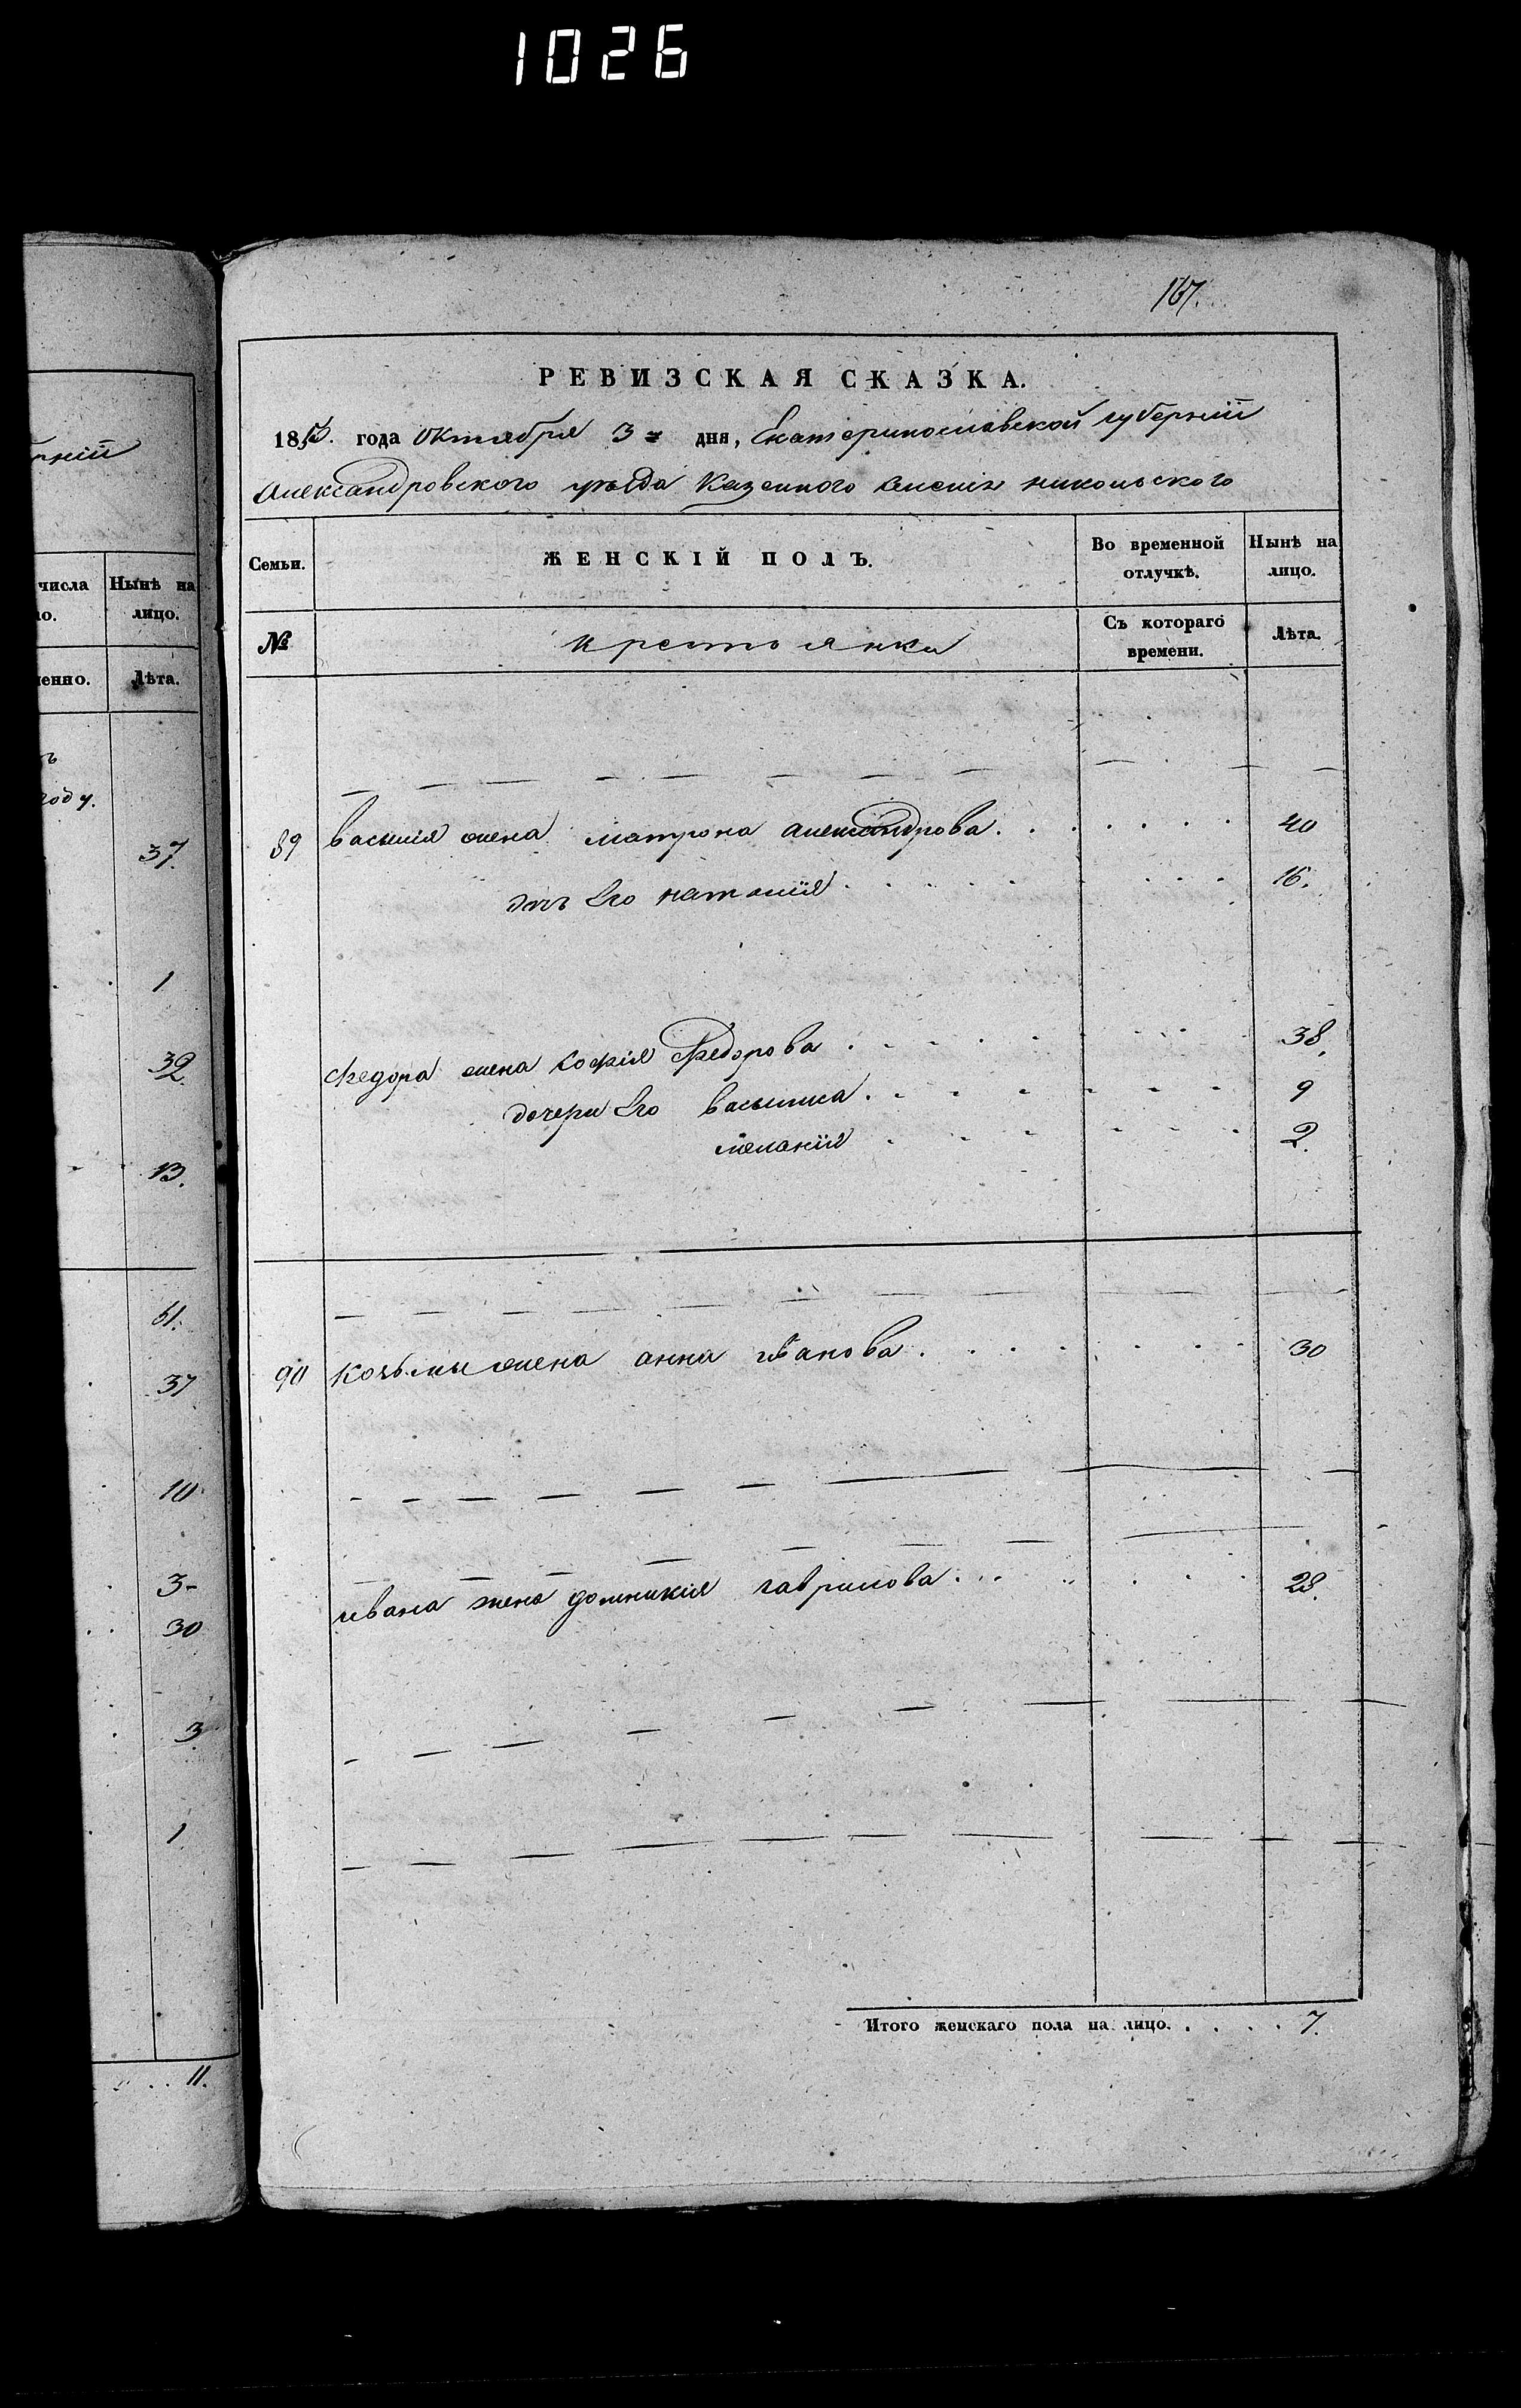 1026
167.
рніи
числа Нынѣ на
о. лицо.
енно. Лѣта.
ъ
году.
37.
1
32.
13.
51.
37
10
3-
30
3
1
11.
РЕВИЗСКАЯ СКАЗКА.
1850. года Октября 3 = дня, Екатеринославской губерніи
Александровского уѣзда Казенного селенія никольского
Семьи. ЖЕНСКІЙ ПОЛЪ. Во временной отлучкѣ. Нынѣ на лицо.
№ крестьянки Съ котораго времени. Лѣта.
89 василія жена матрона александрова. 40
дочь Его наталія 16.
Федора жена софія Федорова 38.
дочери Его василиса. 9
меланія 2.
90 козьмы жена анна иванова. 30
ивана жена домникія гаврилова. 28.
Итого женскаго пола на лицо. 7.